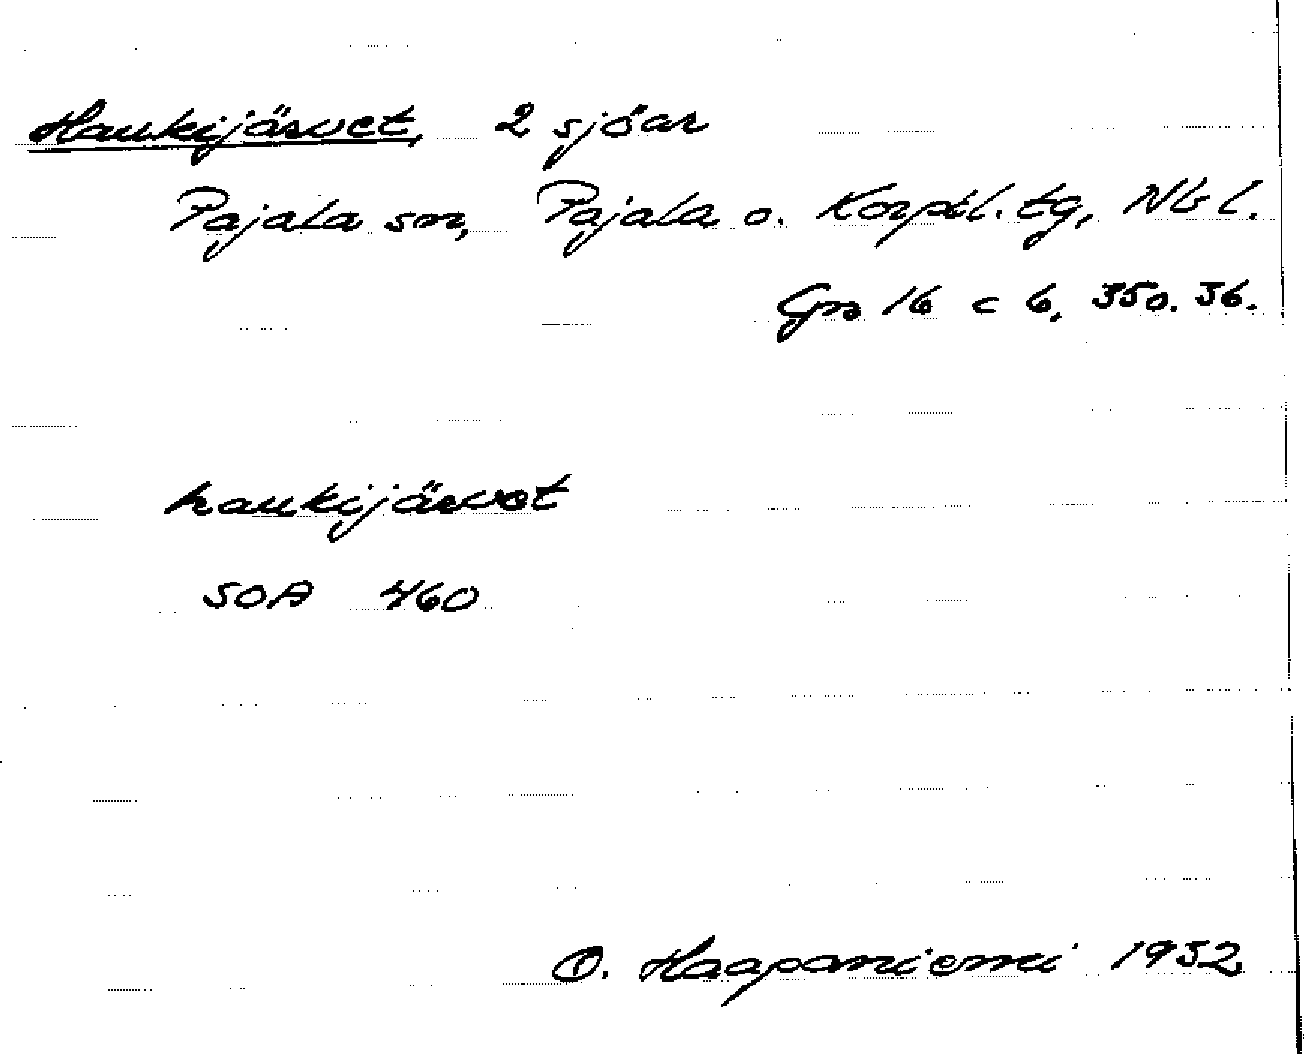 Haukijärvet, 2 sjöar
Pajala sn, Pajala o. Korpil. tg, Nb l.
Grs 16 c 6, 350. 36.
haukijärvet
SOA 460
O. Haapaniemi 1952